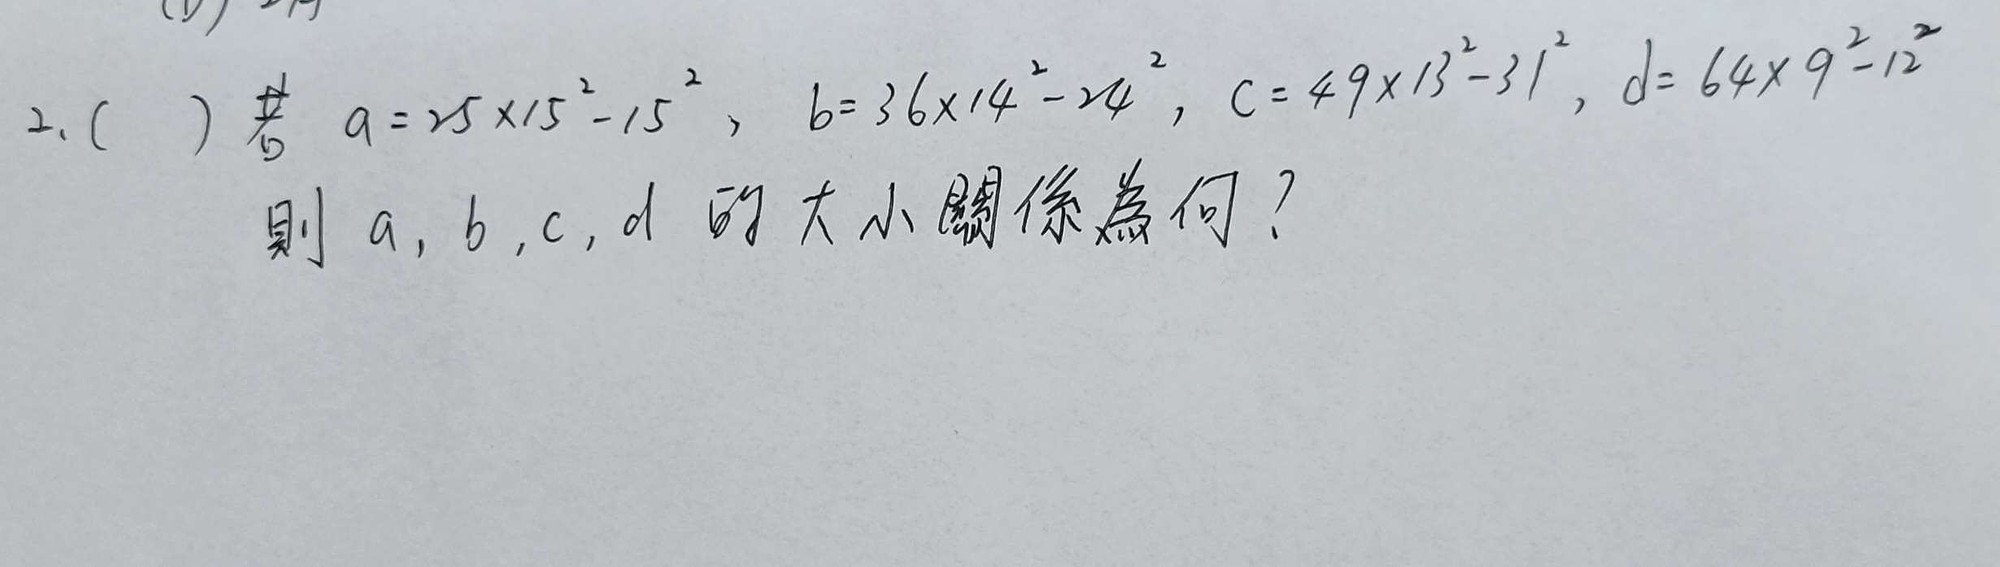 2.( ) 若 a=25×15²-15², b=36×14²-24², c=49×13²-31², d=64×9²-12²
則 a, b, c, d 的大小關係為何?